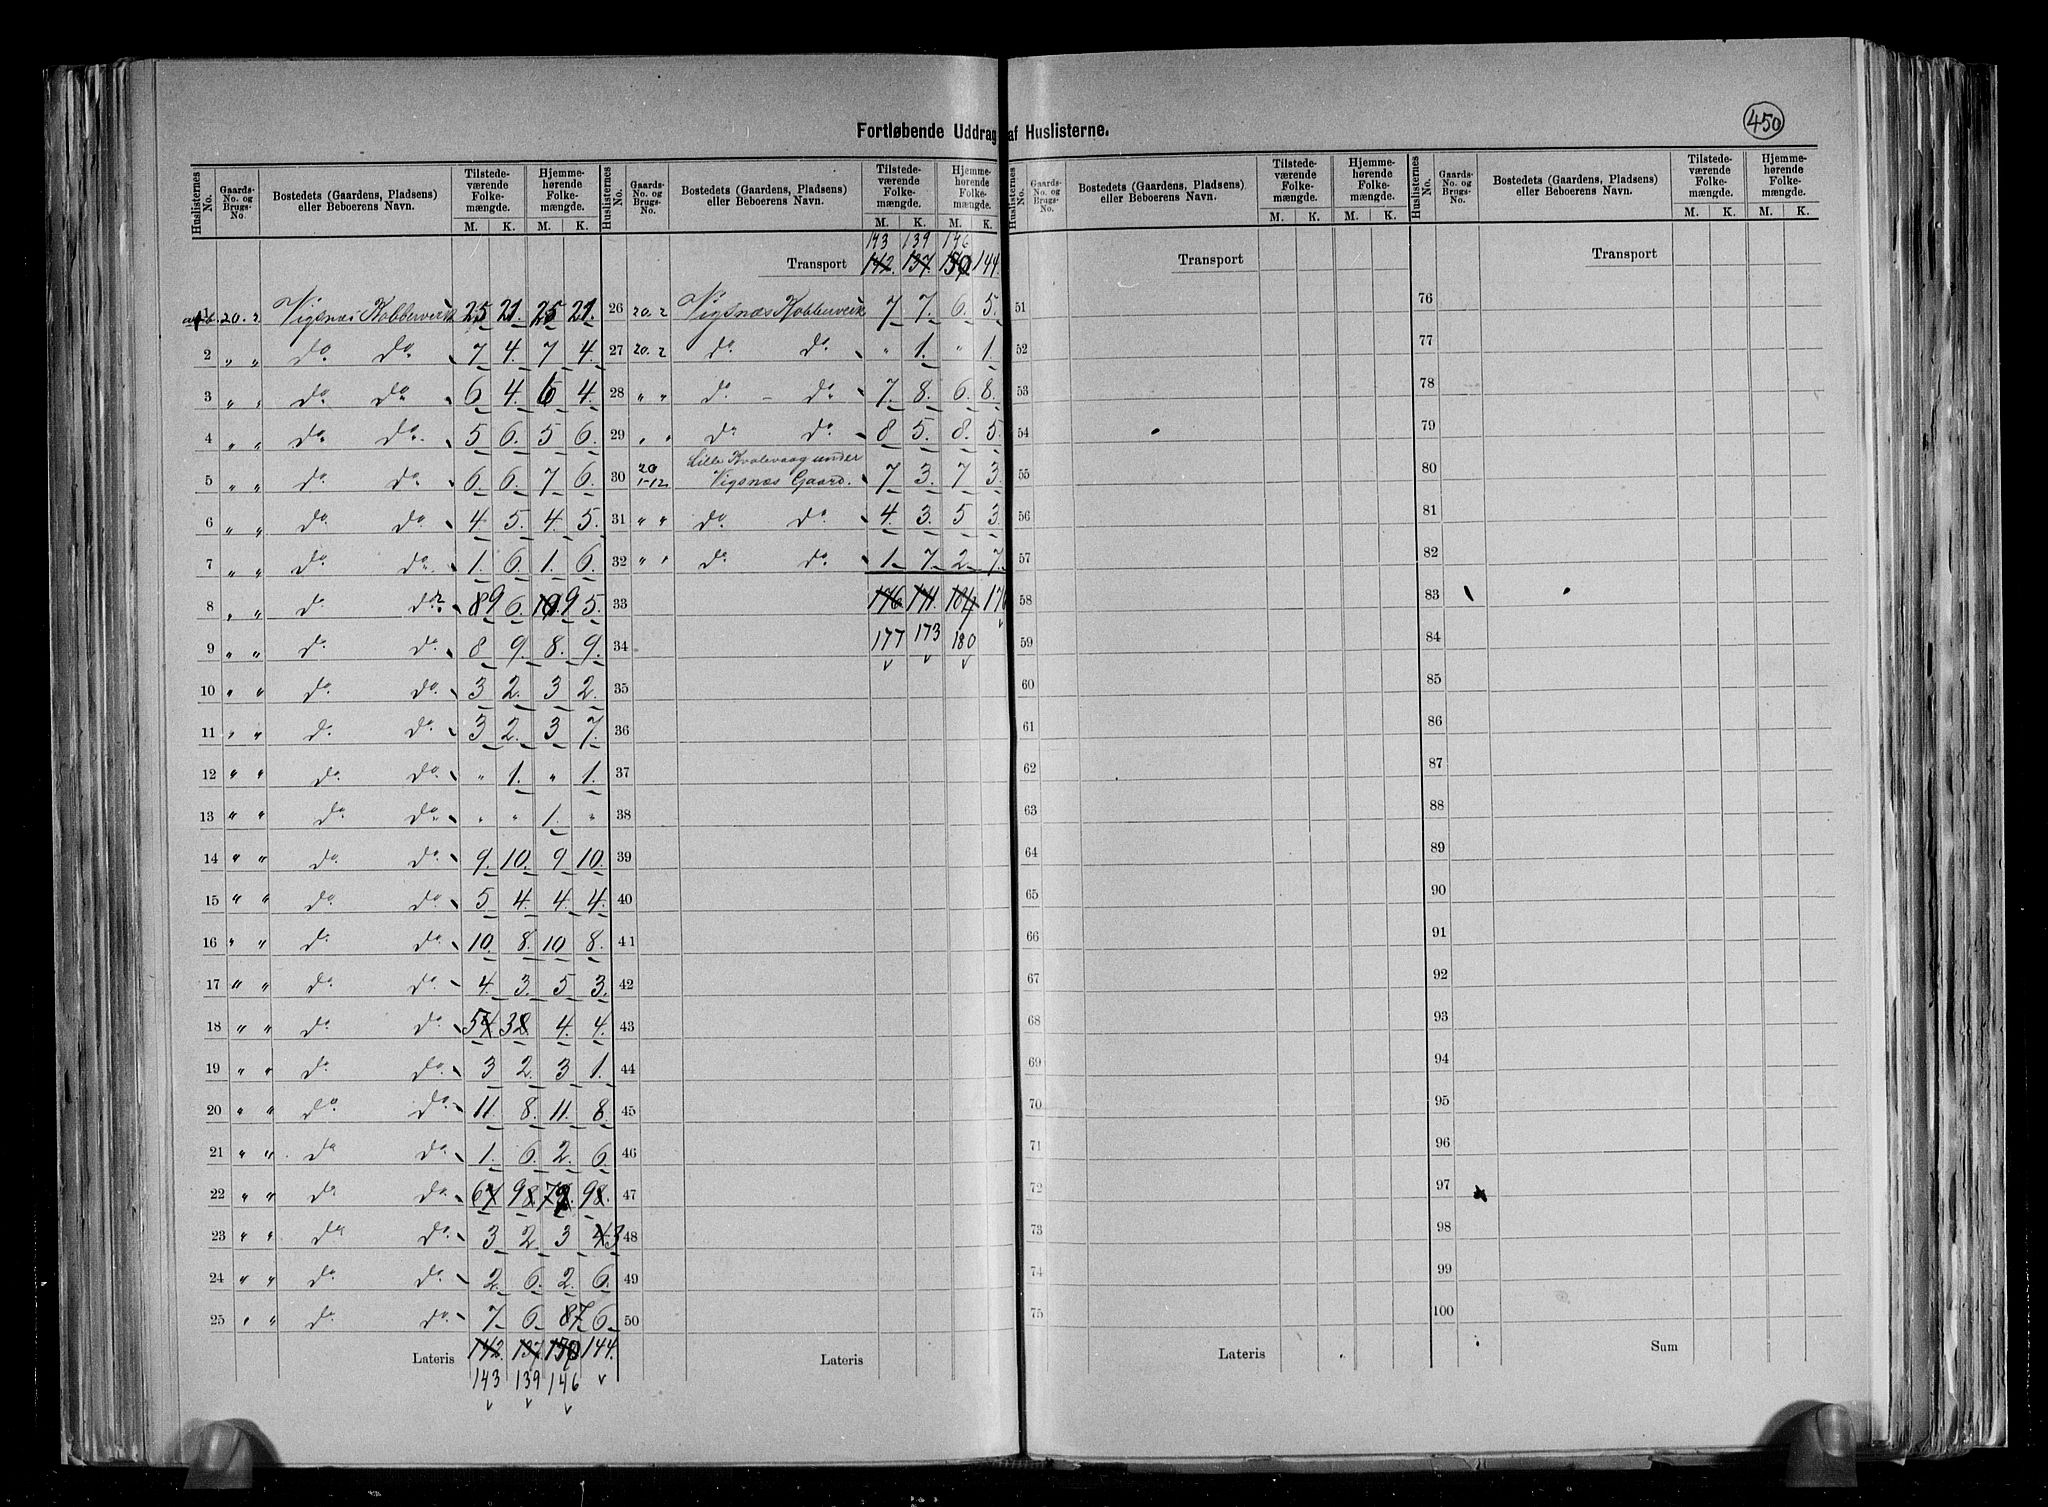 Fortløbende Uddrag af Huslisterne.
450
Huslisternes No. | Gaards-No. og Brugs-No. | Bostedets (Gaardens, Pladsens) eller Beboerens Navn. | Tilstedeværende Folkemængde. M. K. | Hjemmehørende Folkemængde. M. K.
1 20. 2 Vigsnæs Kobberverk 25 21. 25 21.
2 " " do. do. 7 4. 7 4.
3 " " do. do. 6 4. 6 4.
4 " " do. do. 5 6. 5 6.
5 " " do. do. 6 6. 7 6.
6 " " do. do. 4 5. 4. 5.
7 " " do. do. 1. 6. 1. 6.
8 " " do. do. 8 9 6. 10. 9 5.
9 " " do. do. 8 9. 8. 9.
10 " " do. do. 3 2. 3 2.
11 " " do. do. 3 2. 3 7.
12 " " do. do. " 1. " 1.
13 " " do. do. " " 1. "
14 " " do. do. 9. 10. 9 10.
15 " " do. do. 5 4. 4. 4.
16 " " do. do. 10. 8. 10 8.
17 " " do. do. 4. 3. 5 3.
18 " " do. do. 5 4 3 2. 4. 4.
19 " " do. do. 3 2. 3 1.
20 " " do. do. 11. 8. 11. 8.
21 " " do. do. 1. 6 2. 6.
22 " " do. do. 6 7 9 8. 7 9 8.
23 " " do. do. 3 2 3 4 3
24 " " do. do. 2 6. 2. 6.
25 " " do. do. 7 6. 8 7 6.
Lateris 142. 137. 150 144.
143 139 146
143 139 146
Transport 142. 137. 150 144.
26 20. 2 Vigsnæs Kobberverk 7 7. 6. 5.
27 20. 2 do. do. " 1. " 1.
28 " " do. do. 7. 8. 6. 8.
29 " " do. do. 8 5. 8. 5.
30 20 1-12 Lille Kvalevaag under
Vigsnæs Gaard. 7 3. 7 3.
31 " " do. do. 4. 3. 5 3.
32 " " do. do. 1. 7. 2. 7.
33 176 171. 184
34 177 173 180
35
36
37
38
39
40
41
42
43
44
45
46
47
48
49
50
Lateris
Huslisternes No. | Gaards-No. og Brugs-No. | Bostedets (Gaardens, Pladsens) eller Beboerens Navn. | Tilstedeværende Folkemængde. M. K. | Hjemmehørende Folkemængde. M. K.
Transport
51
52
53
54
55
56
57
58
59
60
61
62
63
64
65
66
67
68
69
70
71
72
73
74
75
Lateris
Transport
76
77
78
79
80
81
82
83
84
85
86
87
88
89
90
91
92
93
94
95
96
97
98
99
100
Sum